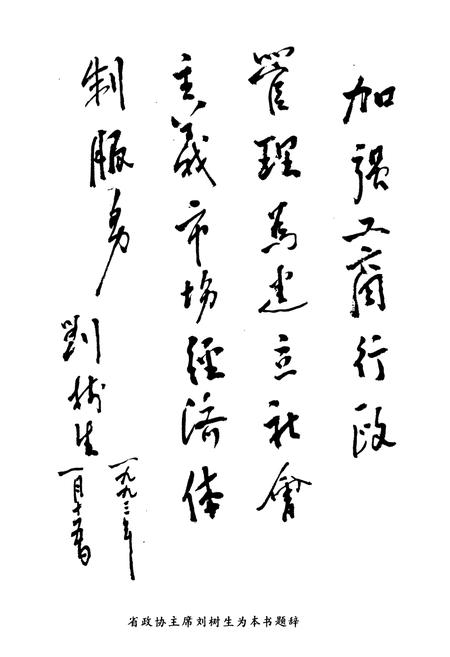 加强工商行政
管理為建立社會
主义市场經济体
制服务
劉树生
一九九三年
一月十五日
省政协主席刘树生为本书题辞